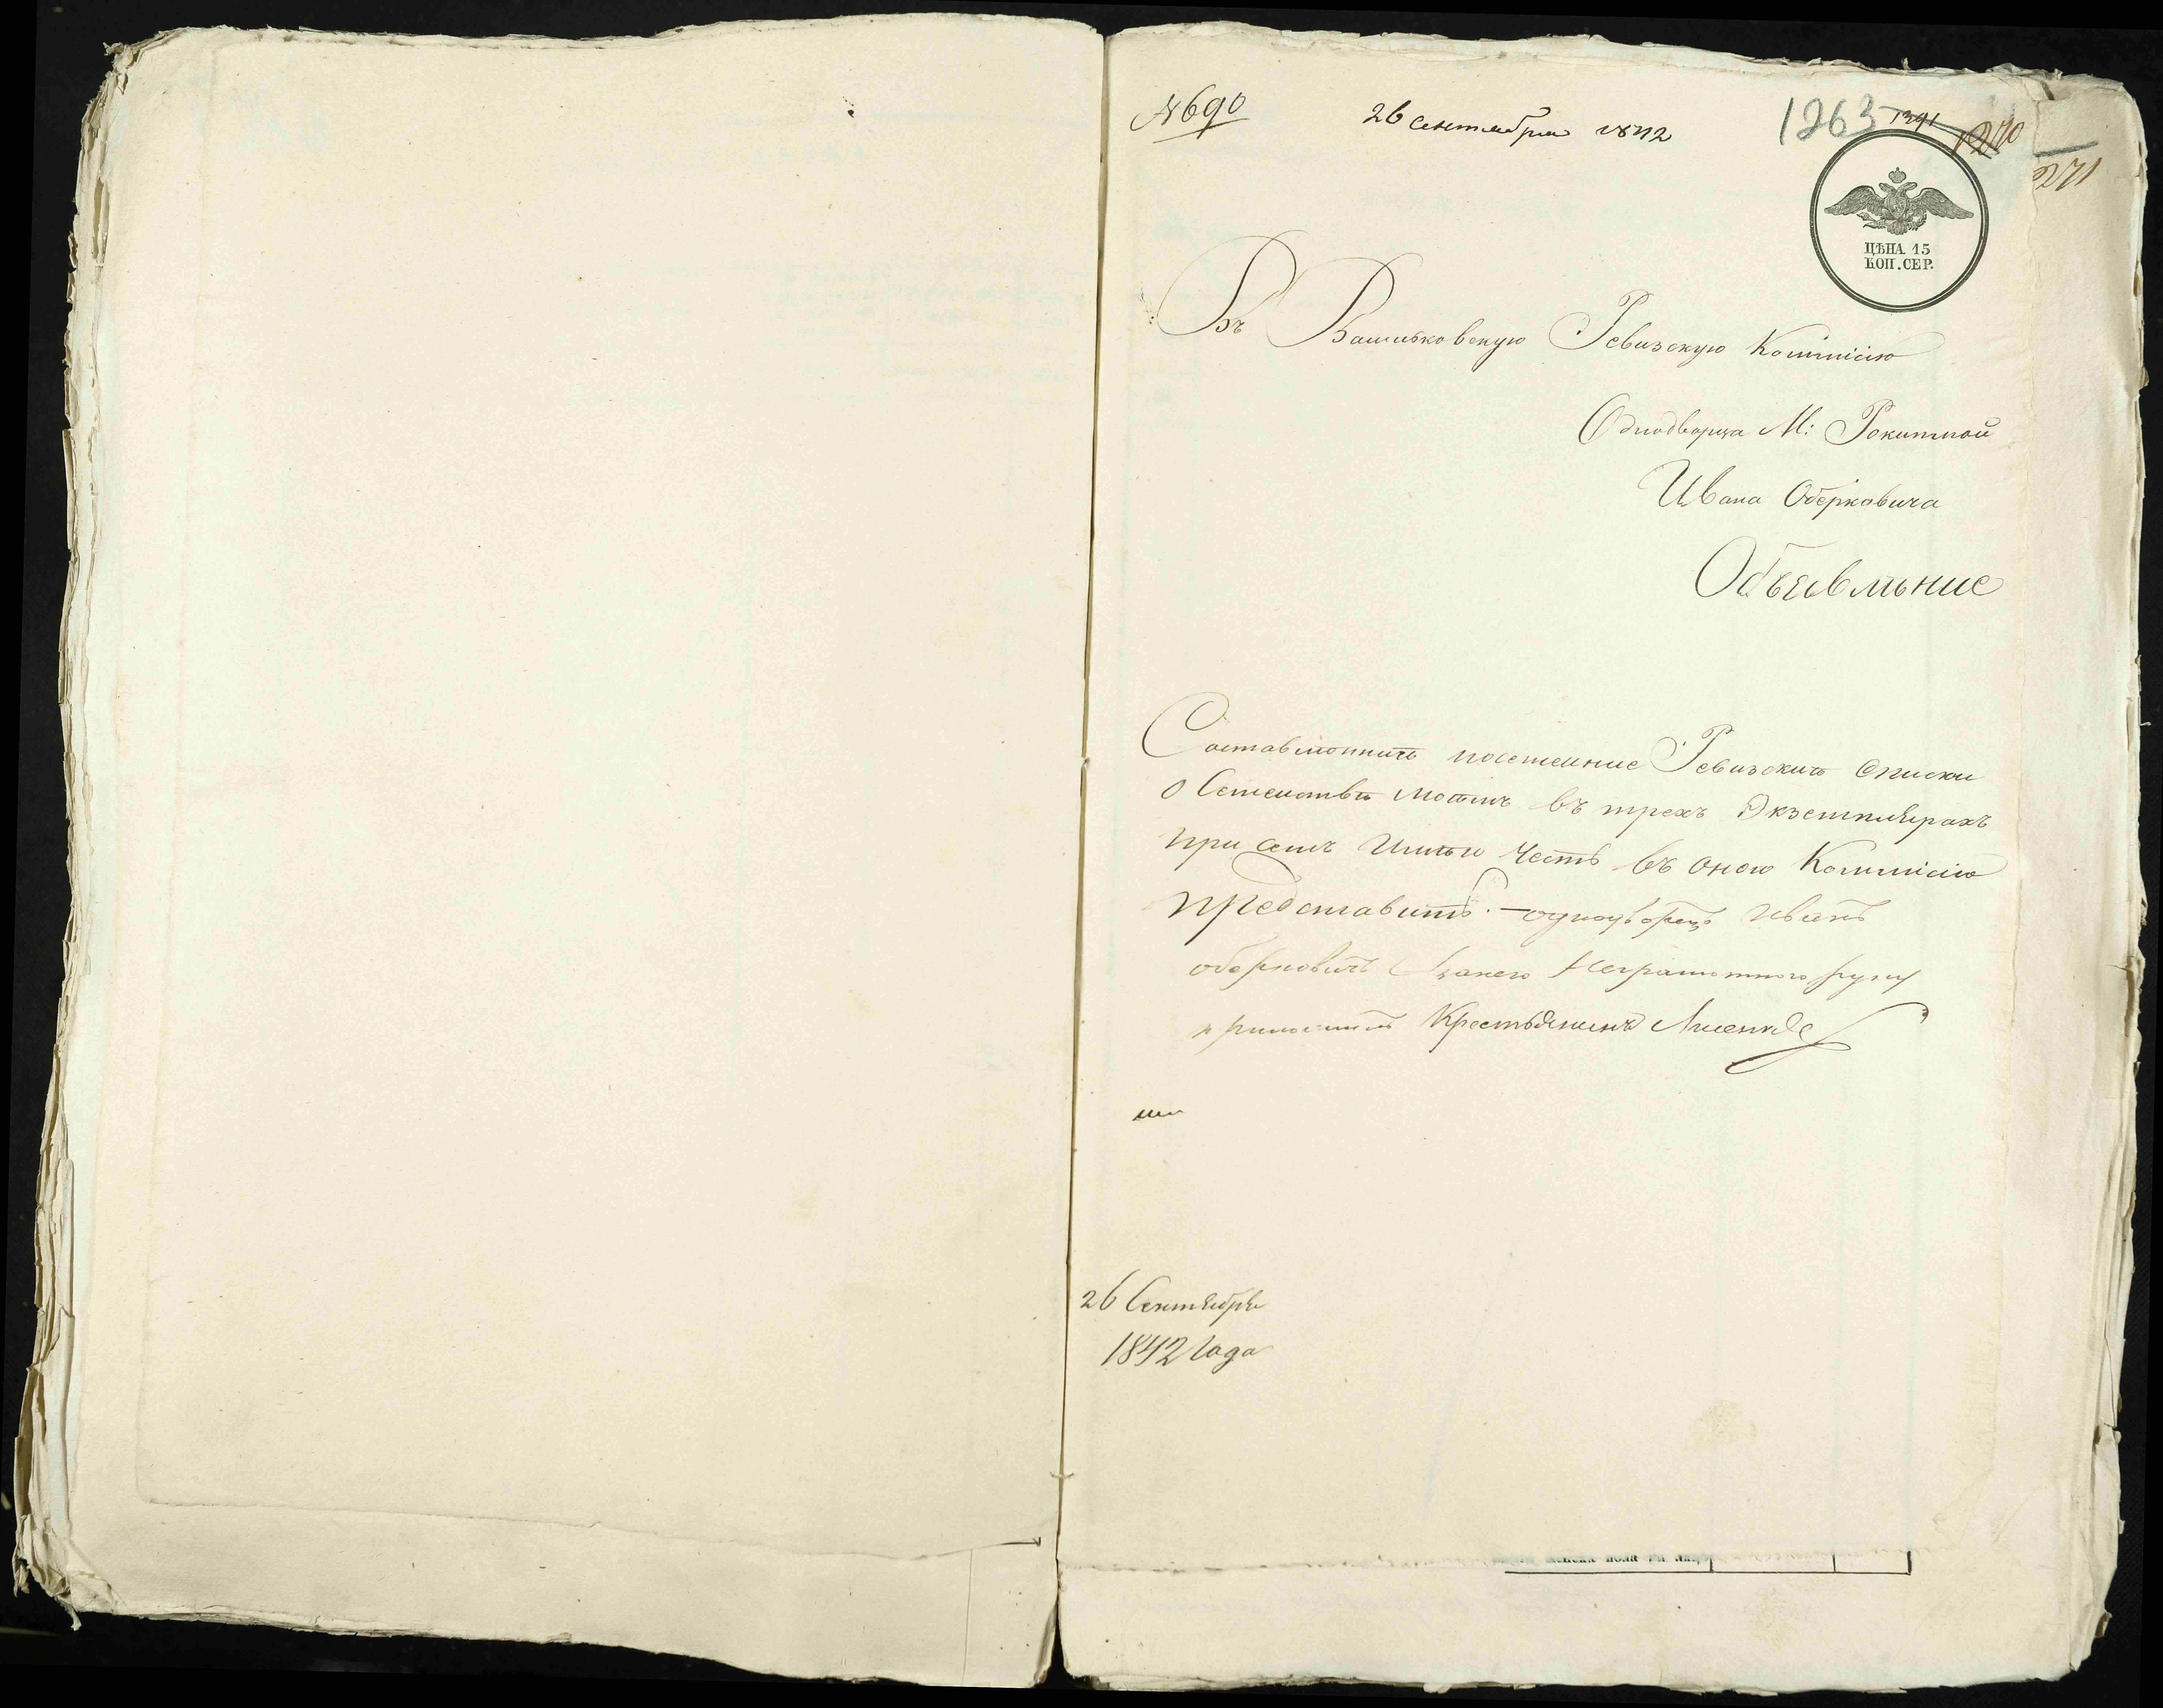 № 690
26 Сентября 1842
1263 1391 1270
1271
ЦѢНА 15
КОП. СЕР.
Въ Васильковскую Ревизскую Комисію
Однодворца М: Рокитной
Ивана Оберковича
Объевленіе
Составлѣнніи посемейніе Ревизскіи Списки
о Семействѣ моемъ въ трехъ Экземплярахъ
при семъ Имѣю Честь въ оною Коммисію
представить. — однодворецъ Иванъ
оберковичъ а занего Неграмотного руку
приложилъ Крестьянинъ Лисенко
26 Сентября
1842 Года